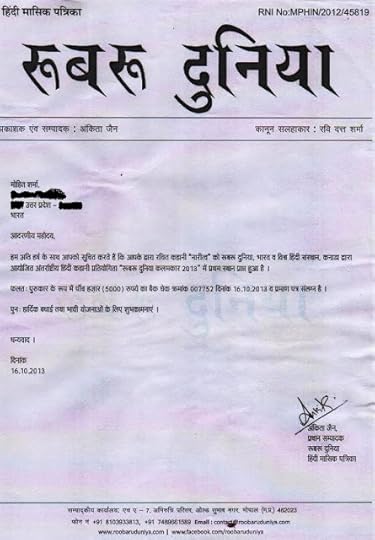 हिंदी मासिक पत्रिका RNI No:MPHIN/2012/45819
रूबरू दुनिया
प्रकाशक एवं सम्पादक : अंकिता जैन कानून सलाहकार : रवि दत्त शर्मा
मोहित शर्मा,
उत्तर प्रदेश -
भारत
आदरणीय महोदय,
हम अति हर्ष के साथ आपको सूचित करते हैं कि आपके द्वारा रचित कहानी "नारीत्व" को रूबरू दुनिया, भारत व विश्व हिंदी संस्थान, कनाडा द्वारा
आयोजित अंतर्राष्ट्रीय हिंदी कहानी प्रतियोगिता "रूबरू दुनिया कलमकार 2013" में प्रथम स्थान प्राप्त हुआ है ।
फलतः पुरुस्कार के रूप में पाँच हज़ार (5000) रुपयों का बैंक चेक क्रमांक 007752 दिनांक 16.10.2013 व प्रमाण पत्र संलग्न है ।
पुनः हार्दिक बधाई तथा भावी योजनाओं के लिए शुभकामनाएं ।
धन्यवाद ।
दिनांक
16.10.2013
अंकिता जैन,
प्रधान सम्पादक
रूबरू दुनिया
हिंदी मासिक पत्रिका
सम्पादकीय कार्यालय: एच ए - 7, अनिरुधि परिसर, ओल्ड सुभाष नगर, भोपाल (म.प्र.) 462023
फोन नं +91 8103933813, +91 7489661589 Email : contact@roobaruduniya.com
www.roobaruduniya.com | www.facebook.com/roobaruduniya